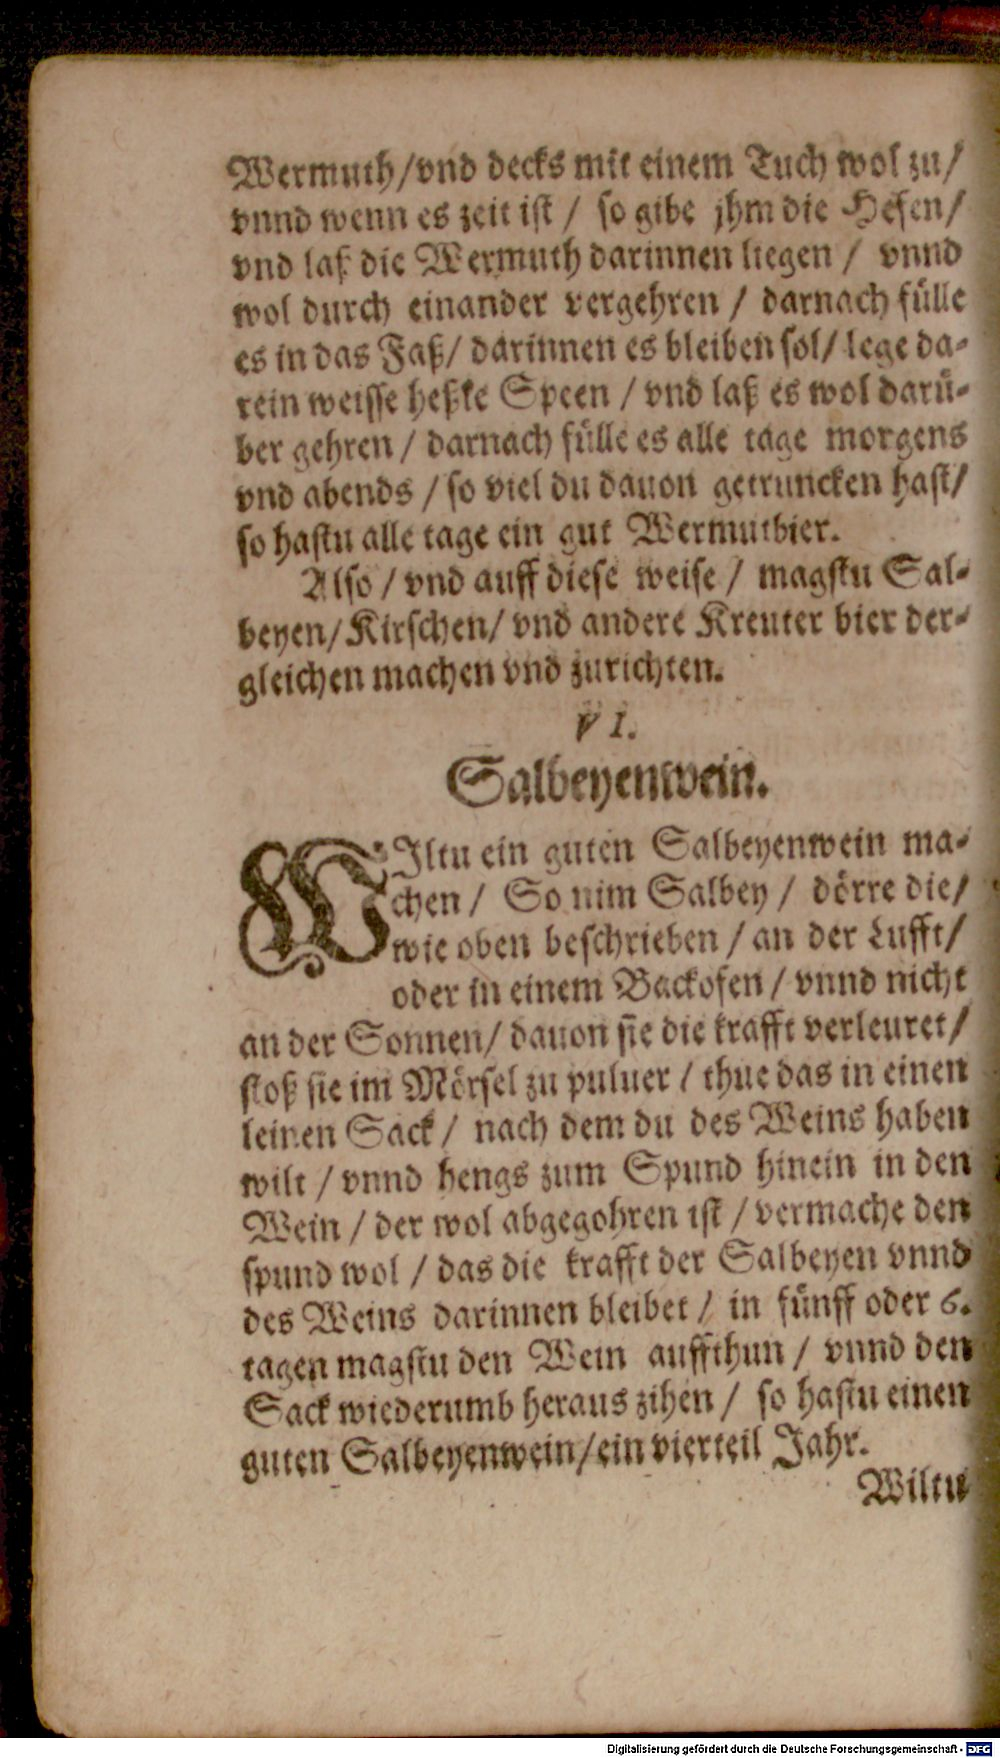 Wermuth/vnd decks mit einem Tuch wol zu/
vnnd wenn es zeit ist / so gibe jhm die Hefen/
vnd laß die Wermuth darinnen liegen / vnnd
wol durch einander vergehren / darnach fülle
es in das Faß/ darinnen es bleiben sol/ lege da-
rein weisse heßke Speen / vnd laß es wol darü-
ber gehren / darnach fülle es alle tage morgens
vnd abends / so viel du dauon getruncken hast/
so hastu alle tage ein gut Wermutbier.
Also / vnd auff diese weise / magstu Sal-
beyen/Kirschen/ vnd andere Kreuter bier der-
gleichen machen vnd zurichten.
VI.
Salbeyenwein.
WIltu ein guten Salbeyenwein ma-
chen / So nim Salbey / dörre die/
wie oben beschrieben / an der Lufft/
oder in einem Backofen / vnnd nicht
an der Sonnen/ dauon sie die krafft verleuret/
stoß sie im Mörsel zu puluer / thue das in einen
leinen Sack / nach dem du des Weins haben
wilt / vnnd hengs zum Spund hinein in den
Wein / der wol abgegohren ist / vermache den
spund wol / das die krafft der Salbeyen vnnd
des Weins darinnen bleibet / in fünff oder 6.
tagen magstu den Wein auffthun / vnnd den
Sack wiederumb heraus zihen / so hastu einen
guten Salbeyenwein/ein vierteil Jahr.
Wiltu
Digitalisierung gefördert durch die Deutsche Forschungsgemeinschaft - DFG